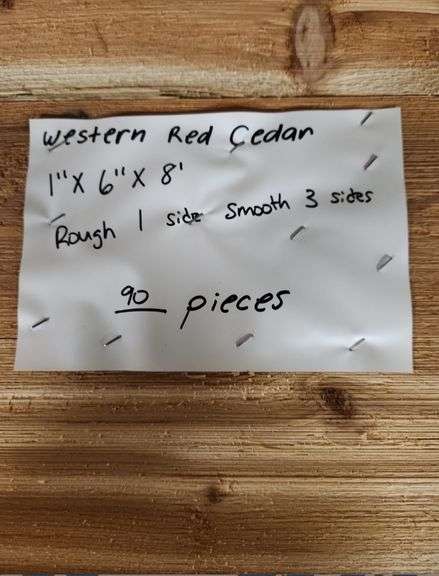 Western Red Cedar
1" X 6" X 8'
Rough 1 side smooth 3 sides
90 pieces